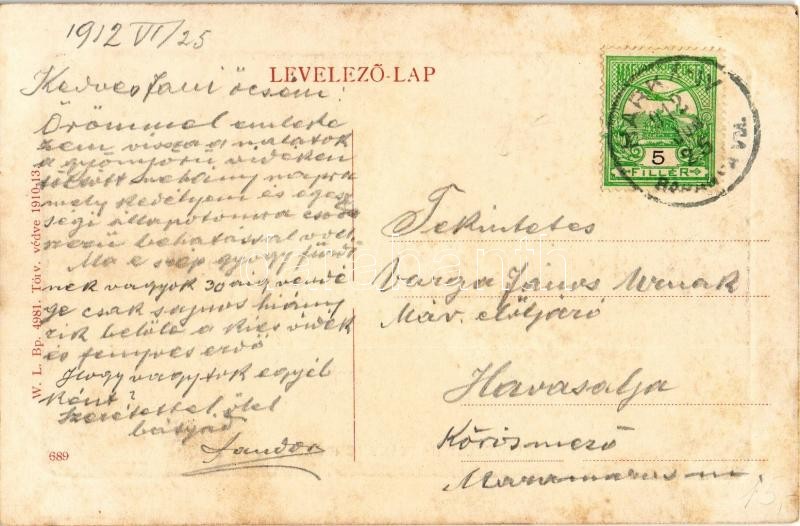 1912 VI/25
LEVELEZŐ-LAP
Kedves Jani öcsém!
Örömmel emléke
zem vissza a nálatok
a gyönyörű vidéken
töltött néhány napra
mely kedélyem és egész
ségi állapotomra
behatással volt.
Ma e szép gyógy fürdő
nek vagyok 30áig vendé
ge csak sajnos hiány
zik belőle a kies vidék
és fenyves erdő
Hogy vagytok egyéb
ként?
Szeretettel ölel
bátyád
Sándor
W. L. Bp. 4981. Törv. védve 1910-13.
689
MAGYAR
5
FILLÉR
912
25
Tekintetes
Varga János Urnak
Máv. előljáró
Havasalja
Kőrösmező
Máramaros m.
darabanth